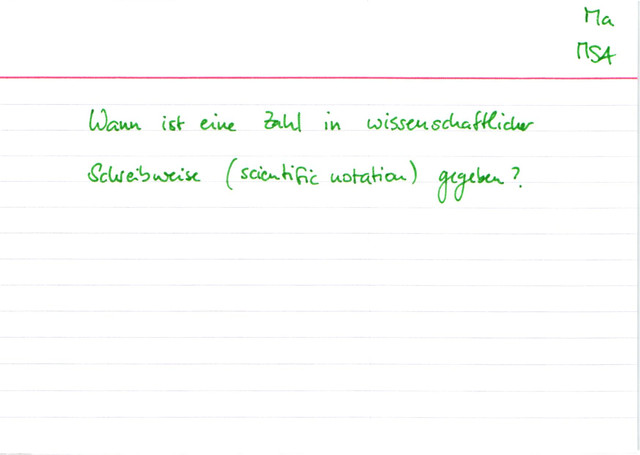 Ma
MSA
Wann ist eine Zahl in wissenschaftlicher
Schreibweise (scientific notation) gegeben?